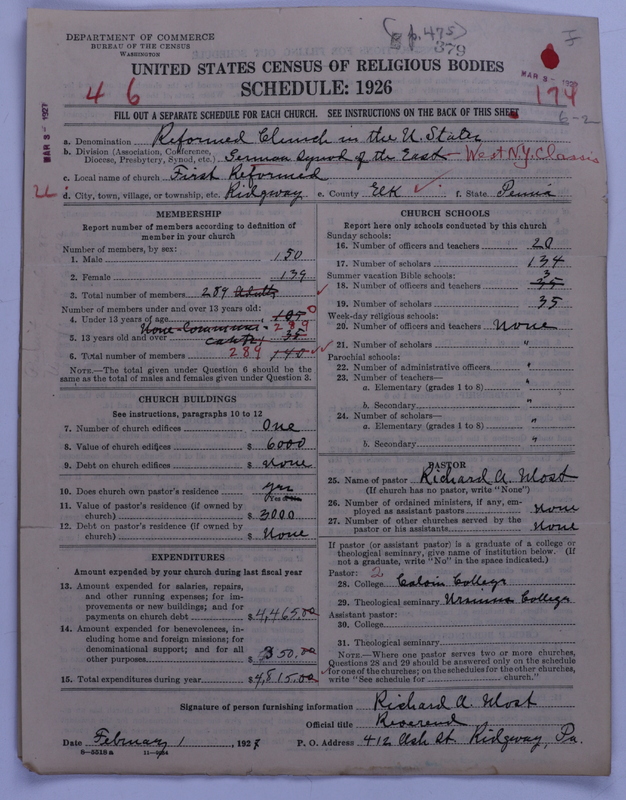 DEPARTMENT OF COMMERCE
BUREAU OF THE CENSUS
WASHINGTON
(p. 475)
379
UNITED STATES CENSUS OF RELIGIOUS BODIES
SCHEDULE: 1926
4 6
MAR 3 - 1927
174
6-2
FILL OUT A SEPARATE SCHEDULE FOR EACH CHURCH. SEE INSTRUCTIONS ON THE BACK OF THIS SHEET
a. Denomination Reformed Church in the U. States
b. Division (Association, Conference, Diocese, Presbytery, Synod, etc.) German Synod of the East - West N.Y. Classis
c. Local name of church First Reformed
d. City, town, village, or township, etc. Ridgway e. County Elk f. State Penna
MEMBERSHIP
Report number of members according to definition of member in your church
Number of members, by sex:
1. Male 150
2. Female 139
3. Total number of members 289 Adults
Number of members under and over 13 years old:
4. Under 13 years of age 105 0
None-Communi-
5. 13 years old and over cants 35 289
6. Total number of members 289 140
NOTE.—The total given under Question 6 should be the same as the total of males and females given under Question 3.
CHURCH BUILDINGS
See instructions, paragraphs 10 to 12
7. Number of church edifices One
8. Value of church edifices $ 6000
9. Debt on church edifices $ None
10. Does church own pastor's residence yes
11. Value of pastor's residence (if owned by church) $ 3000
12. Debt on pastor's residence (if owned by church) $ None
EXPENDITURES
Amount expended by your church during last fiscal year
13. Amount expended for salaries, repairs, and other running expenses; for improvements or new buildings; and for payments on church debt $4,465.00
14. Amount expended for benevolences, including home and foreign missions; for denominational support; and for all other purposes $ 350.00
15. Total expenditures during year $4,815.00
CHURCH SCHOOLS
Report here only schools conducted by this church
Sunday schools:
16. Number of officers and teachers 20
17. Number of scholars 134
Summer vacation Bible schools:
18. Number of officers and teachers 3 35
19. Number of scholars 35
Week-day religious schools:
20. Number of officers and teachers None
21. Number of scholars "
Parochial schools:
22. Number of administrative officers "
23. Number of teachers—
a. Elementary (grades 1 to 8) "
b. Secondary "
24. Number of scholars—
a. Elementary (grades 1 to 8) "
b. Secondary "
PASTOR
25. Name of pastor Richard A. Most
(If church has no pastor, write "None")
26. Number of ordained ministers, if any, employed as assistant pastors None
27. Number of other churches served by the pastor or his assistants None
If pastor (or assistant pastor) is a graduate of a college or theological seminary, give name of institution below. (If not a graduate, write "No" in the space indicated.)
Pastor: 2
28. College Calvin College
29. Theological seminary Ursinus College
Assistant pastor:
30. College
31. Theological seminary
NOTE.—Where one pastor serves two or more churches, Questions 28 and 29 should be answered only on the schedule for one of the churches; on the schedules for the other churches, write "See schedule for church."
Signature of person furnishing information Richard A. Most
Official title Reverend
Date February 1, 1927 P. O. Address 412 Ash St. Ridgway, Pa.
8-5518a 11-9084